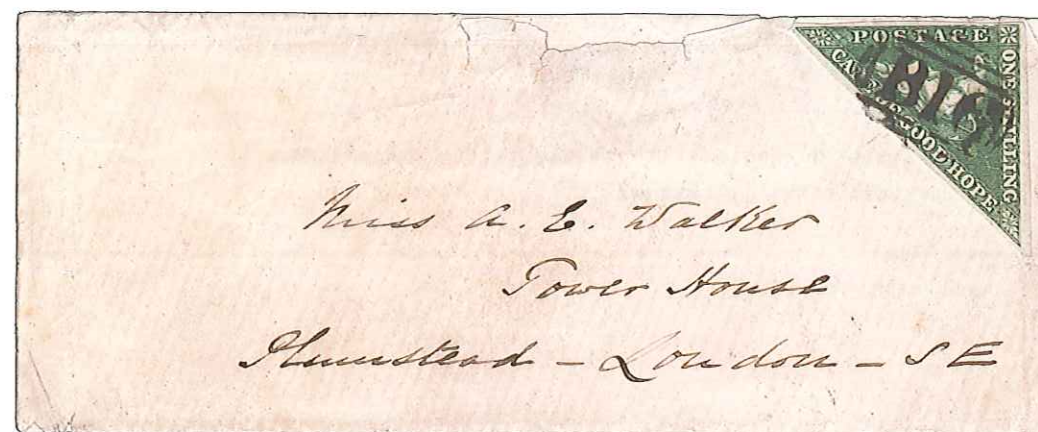 POSTAGE
ONE SHILLING
CAPE OF GOOD HOPE
Miss A. E. Walker
Tower House
Plumstead - London - SE